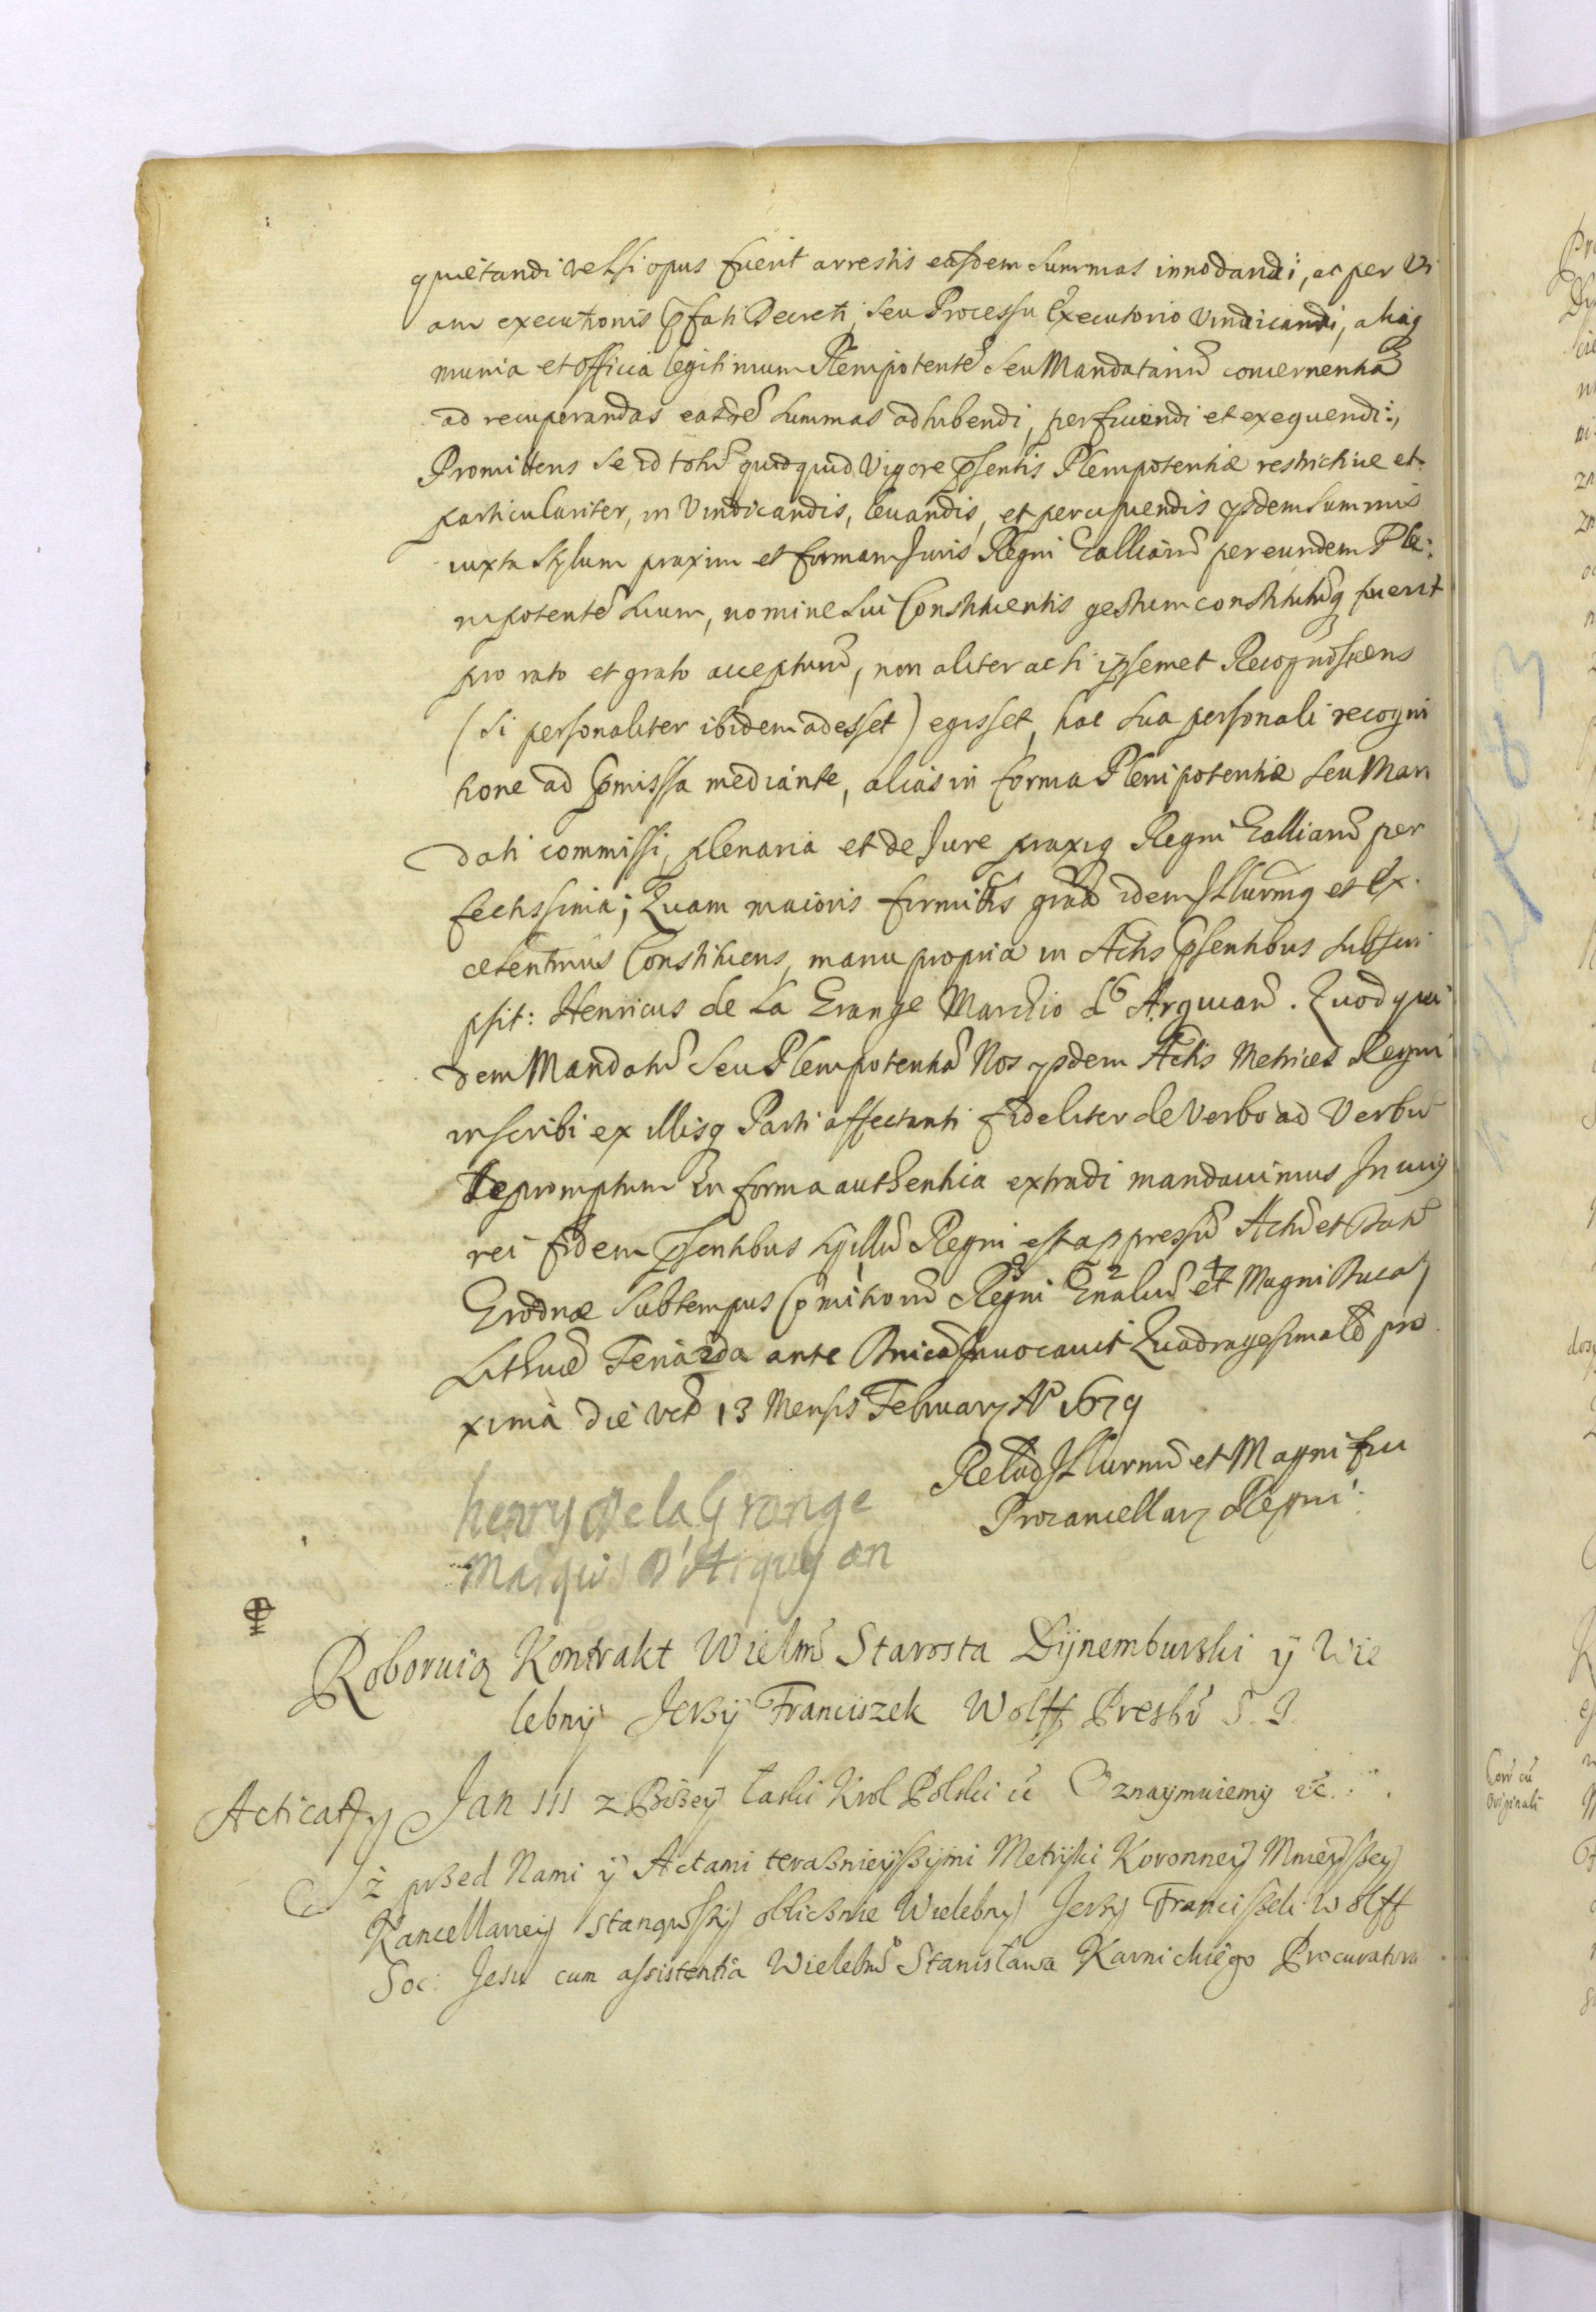 quietandi vel si opus fuerit arrestis easdem summas innodandi, ac per vi
am executionis pfati Decreti, seu Processu Executorio vindicandi, aliaq
munia et officia legitimum Plenipotentē seu Mandatariū concernentia
ad recuperandas easdē summas adhibendi, perficiendi et exequendi:,
Promittens se id totū quidquid vigore psentis Plenipotentiæ restrictive et
particulariter, in vindicandis, levandis, et percipiendis ijsdem summis
iuxta stylum praxim et formam Juris Regni Galliarū per eundem Ple:
nipotentē suum, nomine sui Constituentis gestum constitutūq fuerit
pro rato et grato accepturū, non aliter ac si ipsemet Recognoscens
(si personaliter ibidem adesset) egisset, hac sua personali recogni
tione ad pmissa mediante, alias in forma Plenipotentiæ seu Man
dati commissi, plenaria et de Jure praxiq Regni Galliarū per
fectissima; Quam maioris firmitis grā idem Illurmq et Ex
celentmus Constituens, manu propria in Actis psentibus subscri
psit: Henricus de La Grange Marchio d Arquian. Quod qui
dem Mandatū seu Plenipotentiā Nos ijsdem Actis Metrices Regni
inscribi ex illisq Parti affectanti fideliter de verbo ad verbū
depromptum in forma authentica extradi mandavimus In cuiq
rei fidem psentibus sigillū Regni est appressū Actū et Datū
Grodnæ sub tempus Comitiorū Regni Gnaliū et Magni Ducatq
Lithuæ Feria 2da ante Dnicā Invocavit Quadragesimalē pro
xima die vero 13 Mensis February Ao 1679
Relatio Illurmi et Magnifici
Procancellarij Regni:
henry De la Grange
Marquis D'Arquyan
Roboruią Kontrakt Wielmo Starosta Dijnemburski ÿ Wie
lebny Jerzÿ Franciszek Wolff Presbr S. J.
Acticat
Jan III z Bożey Łaski Krol Polski &c Oznaymuiemy &c.
Iż przed Nami ÿ Actami teraznieyszÿmi Metrÿki Koronneÿ Mnieyszey
Kancellarieÿ stanąwszy obliczne Wielebny Jerzy Franciszek Wolff
Soc: Jesu cum assistentia Wielebo Stanisława Karnickiego Procuratora
Corr cū
Originali